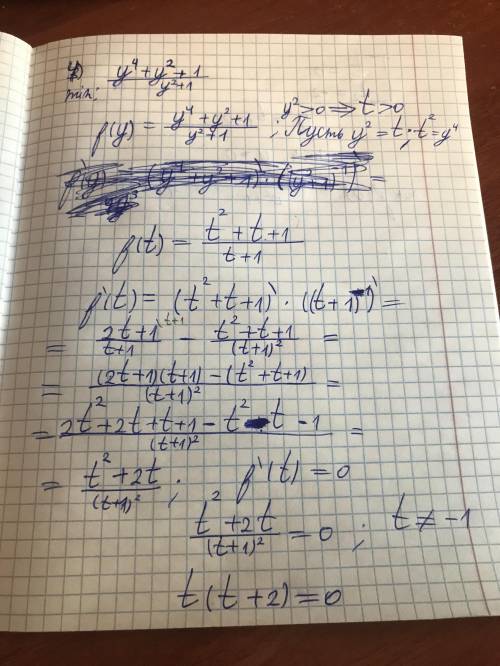 4) y⁴ + y² + 1 / y²+1
min;
y² > 0 ⇒ t > 0
f(y) = y⁴ + y² + 1 / y² + 1 ; Пусть y² = t; t² = y⁴
f(t) = t² + t + 1 / t + 1
f'(t) = (t² + t + 1)' · ((t + 1)⁻¹)' =
= 2t + 1 / t+1 − t² + t + 1 / (t+1)² =
= (2t+1)(t+1) − (t² + t + 1) / (t+1)² =
= 2t² + 2t + t + 1 − t² − t − 1 / (t+1)² =
= t² + 2t / (t+1)² ; f'(t) = 0
t² + 2t / (t+1)² = 0 ; t ≠ −1
t(t + 2) = 0